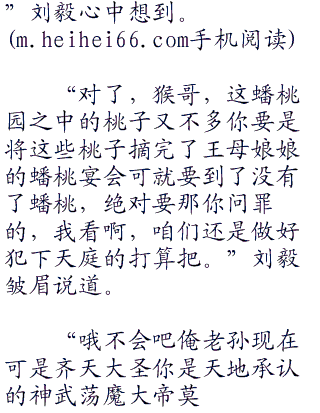 ” 刘毅心中想到。
(m.heihei66.com手机阅读)
“对了，猴哥，这蟠桃
园之中的桃子又不多你要是
将这些桃子摘完了王母娘娘
的蟠桃宴会可就要到了没有
了蟠桃，绝对要那你问罪
的，我看啊，咱们还是做好
犯下天庭的打算把。” 刘毅
皱眉说道。
“哦不会吧俺老孙现在
可是齐天大圣你是天地承认
的神武荡魔大帝莫